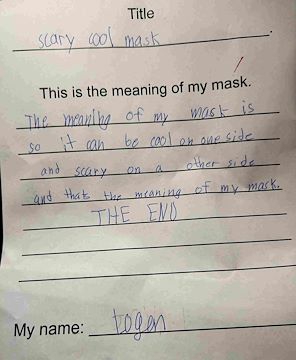 Title
scary cool mask
This is the meaning of my mask.
The meaning of my mask is
so it can be cool on one side
and scary on a other side
and thats the meaning of my mask.
THE END
My name: logan